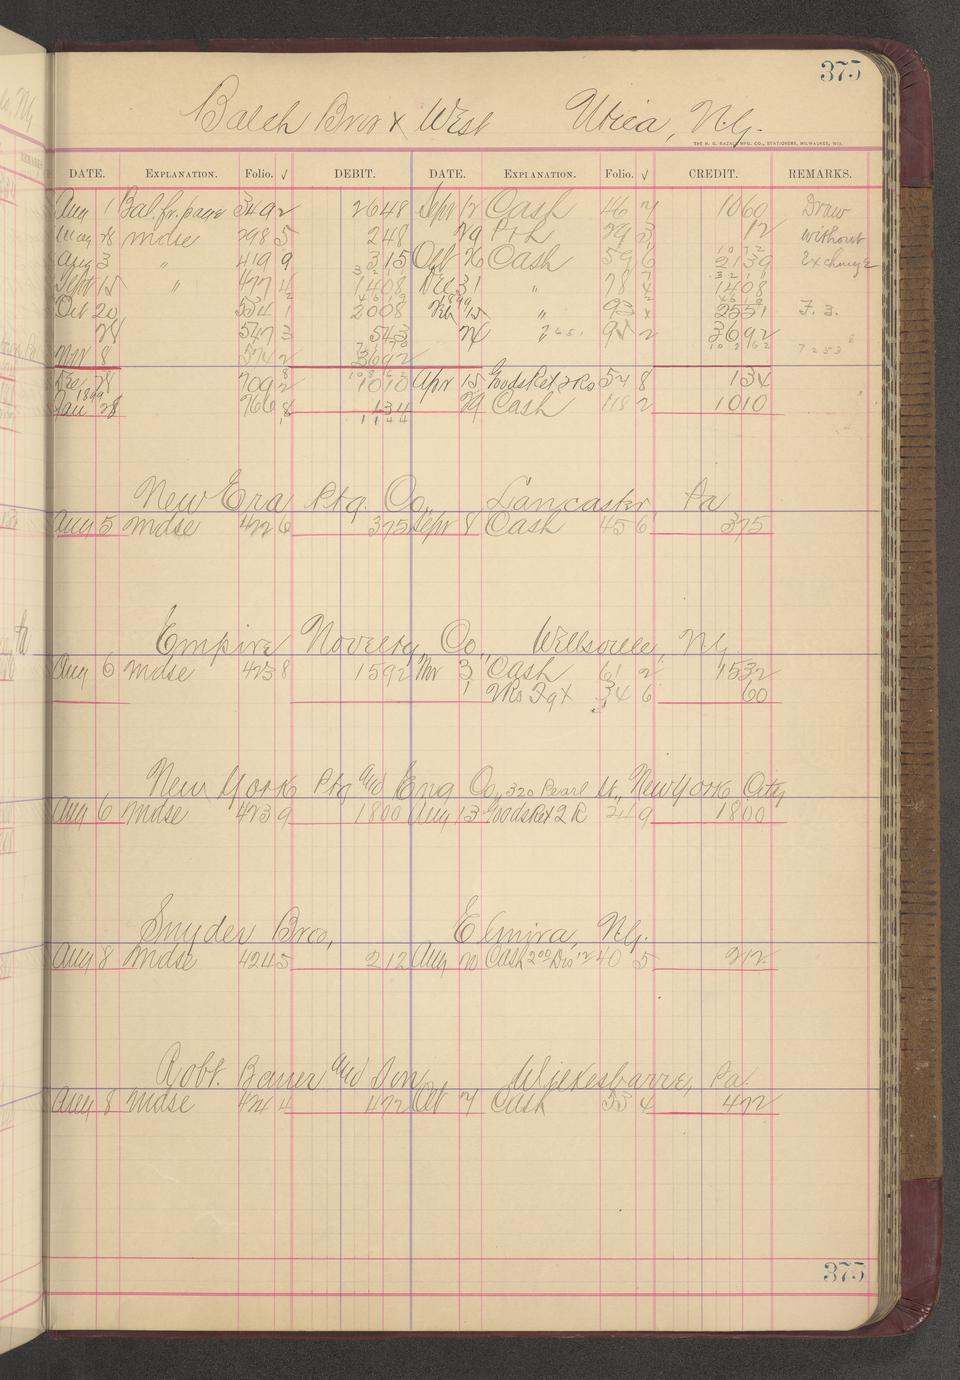 375
Balch Bros & West Utica, N.Y.
THE H. G. RAZALL MFG. CO., STATIONERS, MILWAUKEE, WIS.
DATE. EXPLANATION. Folio. √ DEBIT. DATE. EXPLANATION. Folio. √ CREDIT. REMARKS.
Aug 1 Bal. fr. page 349 2 2648 Sept 12 Cash 46 1060 Draw
May 28 mdse 298 5 248 29 29 12 without
Aug 3 " 419 9 315 Oct 26 Cash 59 6 2139 Exchange
Sept 15 " 477 4 1408 Dec 31 78 4 1408
Oct 20 534 1 2008 Feb 15 " 93 2551 F. 3.
28 547 3 543 24 2651 95 2 3692
Nov 8 574 2 3692 7253
Dec 28 709 2 1010 Apr 15 Goods Ret 2Rs 54 8 134
1899
Jan 28 766 8 134 29 Cash 118 2 1010
1144
New Era Ptg. Co., Lancaster Pa
Aug 5 mdse 422 6 375 Sept 8 Cash 45 6 375
Empire Novelty Co., Wellsville, N.Y.
Aug 6 mdse 423 8 1592 Nov 3 Cash 61 2 1532
1 2Rs 34 6 60
New York Ptg and Eng Co., 320 Pearl St., New York City
Aug 6 mdse 423 9 1800 Aug 13 Goods Ret 2 R 24 9 1800
Snyder Bros, Elmira, N.Y.
Aug 8 mdse 424 5 212 Aug 20 Cash 200 Dis 12 40 5 212
Robt. Bauer and Son Wilkesbarre, Pa.
Aug 8 mdse 424 4 472 Oct 7 Cash 53 4 472
375